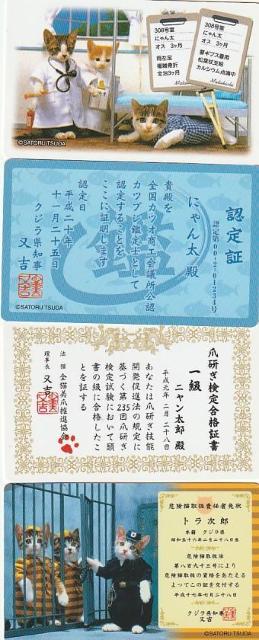 308号室
にゃん太
オス 3ヶ月
308号室
にゃん太
オス 3ヶ月
右左足
複雑骨折
全治3ヶ月
要ギプス着用
松葉杖支給
カルシウム点滴中
©SATORU TSUDA
認定証
認定第00-2701234号
にゃん太 殿
貴殿を
全国カツオ商工会議所公認
カツブシ鑑定士として
認定することを
ここに証明します
認定日
平成二十年
十一月二十五日
クジラ県知事
又吉
©SATORU TSUDA
爪研ぎ検定合格証書
一級
平成元年 二月 二十八日
ニャン太郎 殿
あなたは爪研ぎ技能
開発促進法の規定に
基づく第235回爪研ぎ
検定試験において頭
書の級に合格したこ
とを証する
法認 全猫美爪推進協会
理事長 又吉
危険猫取扱責任者免状
トラ次郎
本籍 クジラ県
昭和五十六年二月二十八日
危険猫取扱法
第八百九十三号により
危険猫取扱の資格をあたえる
よってこの証を交付する
平成十七年七月二十八日
クジラ県知事
又吉
©SATORU TSUDA